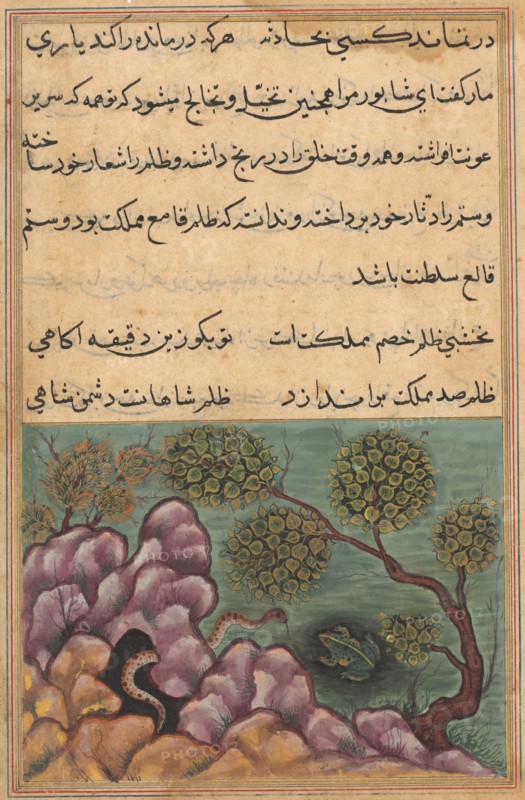 در نماند کسی بحادثه هر که درمانده را کند یاری
مار کفت ای شابور مرا همچنین تخیّل و تخالج میشود که تو همه که سریر
عونت افراشته و همه وقت خلق را در رنج داشته و ظلم را شعار خود ساخته
و ستم را دثار خود پرداخته و ندانته که ظلم قامع مملکت بود و ستم
قالع سلطنت باشد
نخشبی ظلم خصم مملکت است تو بکو زین دقیقه اکاهی
ظلم صد مملکت براندازد ظلم شاهانت دشمن شاهی
PHOTO12
PHOTO12
PHOTO12